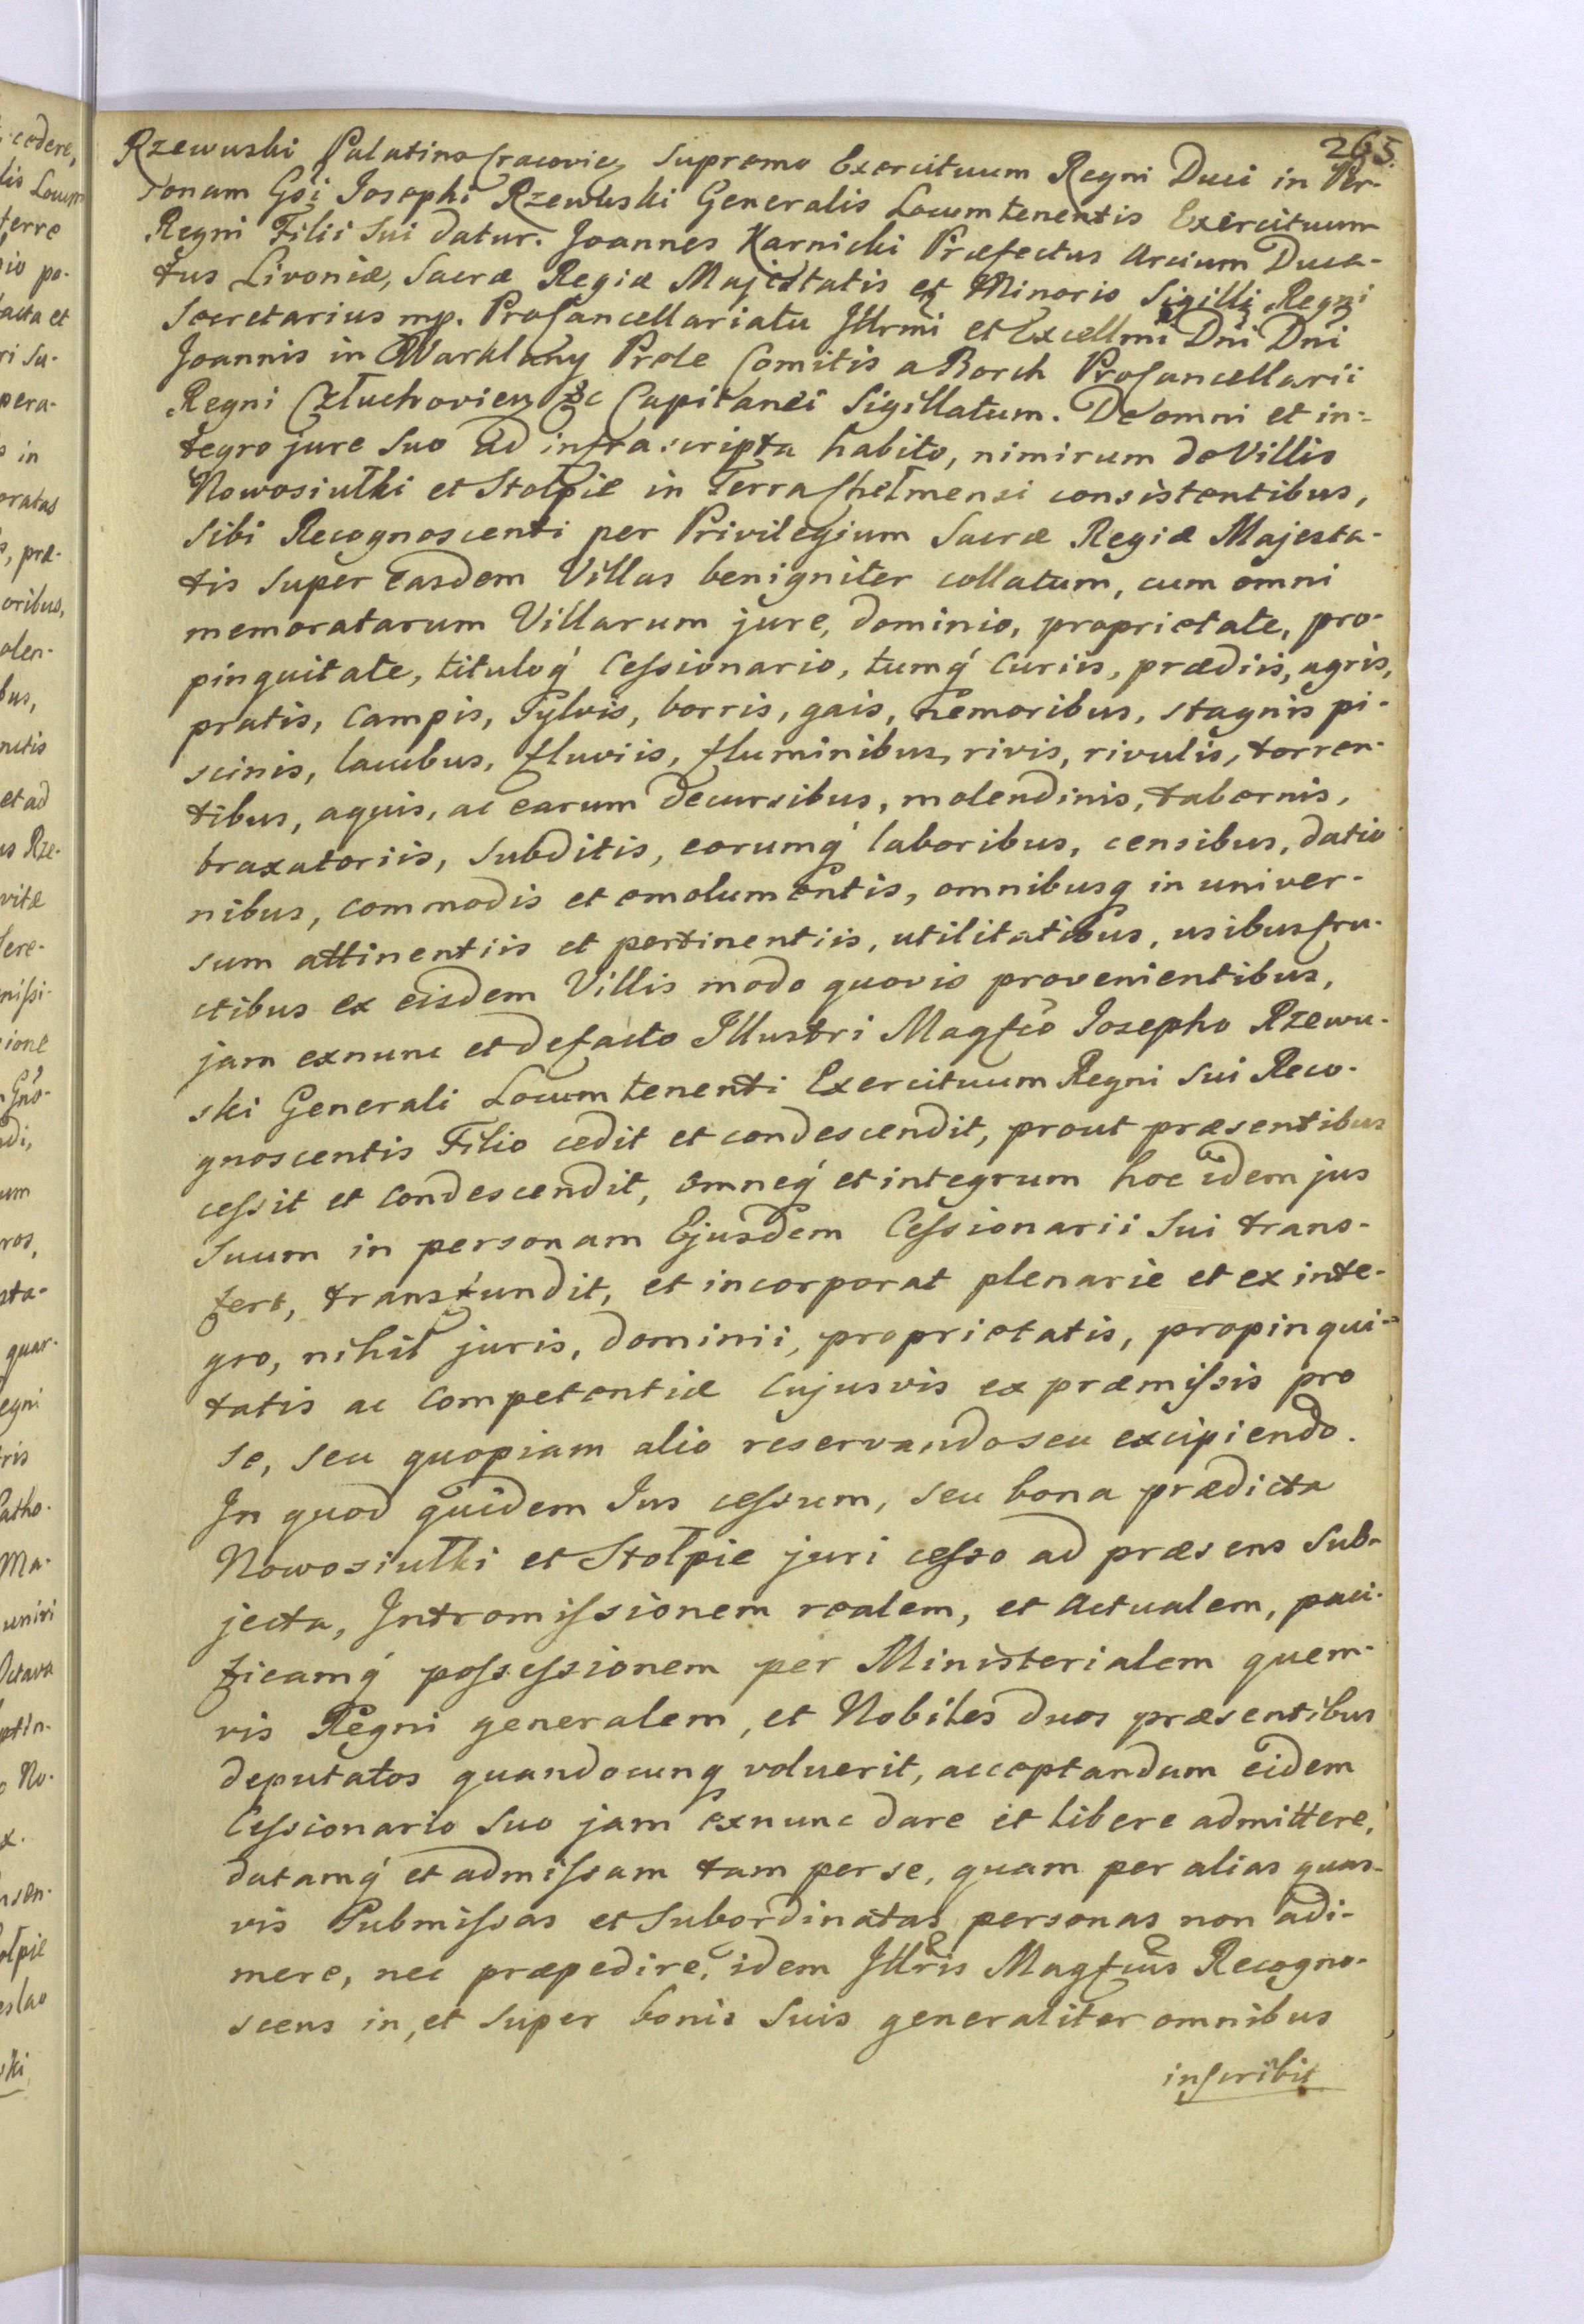 265.
Rzewuski Palatino Cracoviez Supremo Exercituum Regni Duci in Per-
sonam Gsi Josephi Rzewuski Generalis Locumtenentis Exercituum
Regni Filii Sui datur. Joannes Karnicki Præfectus Arcium Duca-
tus Livoniæ, Sacræ Regiæ Majestatis et Minoris Sigilli Regni
Secretarius mp. ProCancellariatu Jllrmi et Excellmi Dni Dni
Joannis in Warklany Prole Comitis a Borch ProCancellarii
Regni Człuchoviez &c Capitanei Sigillatum. De omni et in-
tegro jure Suo ad infrascripta habito, nimirum de Villis
Nowosiułki et Stołpie in Terra Chełmensi consistentibus,
Sibi Recognoscenti per Privilegium Sacræ Regiæ Majesta-
tis Super easdem Villas benigniter collatum, cum omni
memoratarum Villarum jure, dominio, proprietate, pro-
pinquitate, tituloq́ Cessionario, tumq́ Curiis, prædiis, agris,
pratis, Campis, Sylvis, borris, gais, nemoribus, stagnis pi-
scinis, lacubus, fluviis, fluminibus, rivis, rivulis, torren-
tibus, aquis, ac earum decursibus, molendinis, tabernis,
braxatoriis, Subditis, eorumq́ laboribus, censibus, datio
nibus, commodis et emolumentis, omnibusq in univer-
sum attinentiis et pertinentiis, utilitatibus, usibusfru-
ctibus ex eisdem Villis modo quovis provenientibus,
jam exnunc et defacto Jllustri Magfco Josepho Rzewu-
ski Generali Locumtenenti Exercituum Regni Sui Reco-
gnoscentis Filio cedit et condescendit, prout præsentibus
cessit et Condescendit, omneq́ et integrum hoc idem jus
Suum in personam Ejusdem Cessionarii Sui trans-
fert, transfundit, et incorporat plenarie et ex inte-
gro, nihil juris, dominii, proprietatis, propinqui-
tatis ac Competentiæ Cujusvis ex præmissis pro
se, seu quopiam alio reservando seu excipiendo.
Jn quod quidem Jus cessum, seu bona prædicta
Nowosiułki et Stołpie juri cesso ad præsens Sub-
jecta, Jntromissionem realem, et Actualem, paci-
ficamq́ possessionem per Ministerialem quem-
vis Regni generalem, et Nobiles duos præsentibus
deputatos quandocunq voluerit, acceptandum eidem
Cessionario Suo jam exnunc dare et libere admittere,
datamq́ et admissam tam per se, quam per alias quas-
vis Submissas et Subordinatas personas non adi-
mere, nec præpedire, idem Jllris Magfcus Recogno-
scens in, et Super bonis Suis generaliter omnibus
inscribit